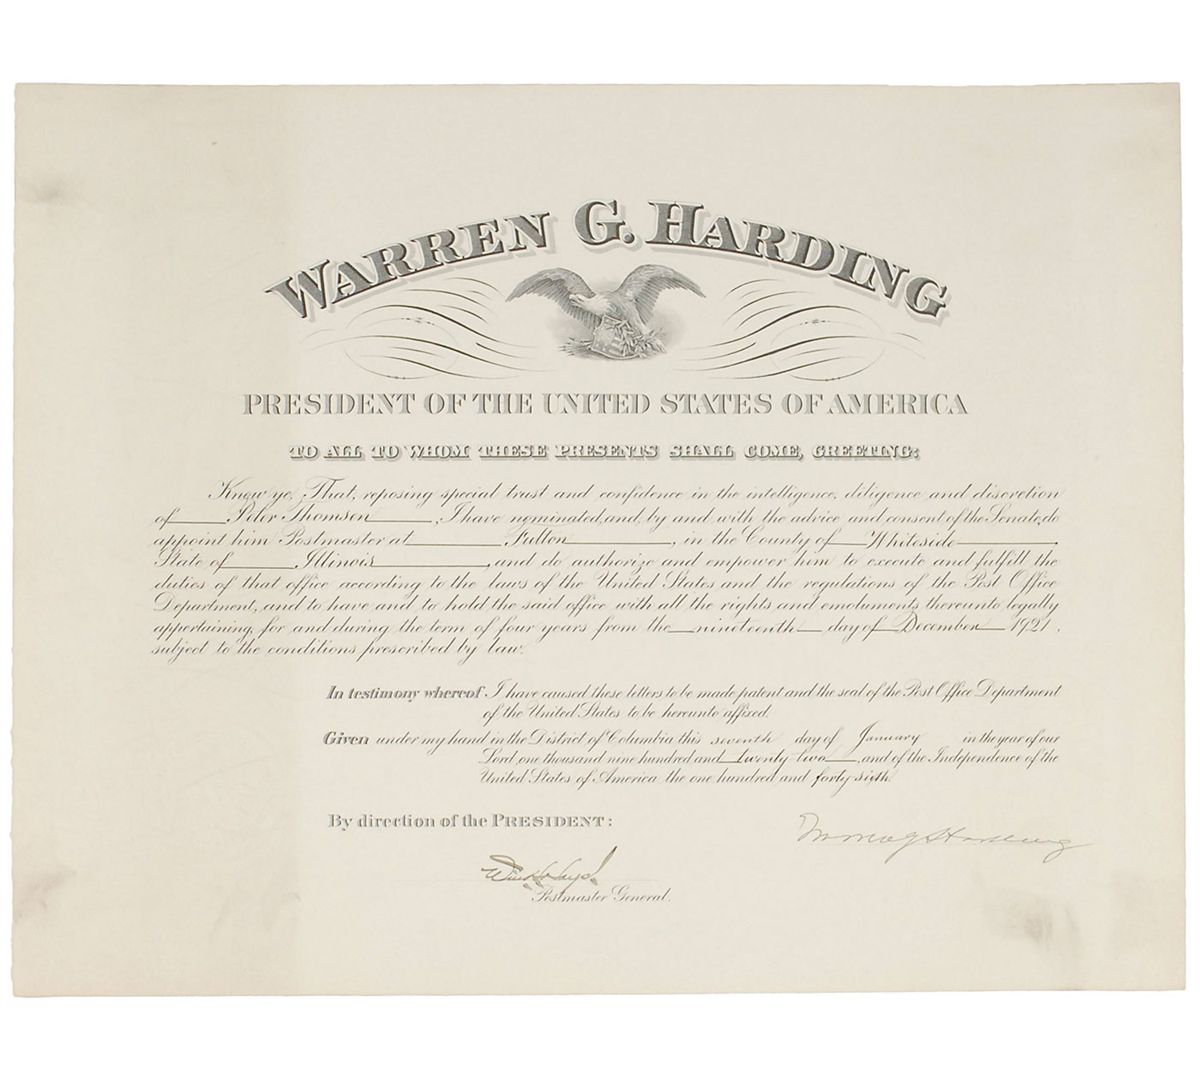 WARREN G. HARDING
PRESIDENT OF THE UNITED STATES OF AMERICA
TO ALL TO WHOM THESE PRESENTS SHALL COME, GREETING:
Know ye, That, reposing special trust and confidence in the intelligence, diligence and discretion
of Peter Thomsen, I have nominated, and, by and with the advice and consent of the Senate, do
appoint him Postmaster at Fulton, in the County of Whiteside,
State of Illinois, and do authorize and empower him to execute and fulfill the
duties of that office according to the laws of the United States and the regulations of the Post Office
Department, and to have and to hold the said office with all the rights and emoluments thereunto legally
appertaining, for and during the term of four years from the nineteenth day of December 1921,
subject to the conditions prescribed by law.
In testimony whereof I have caused these letters to be made patent and the seal of the Post Office Department
of the United States to be hereunto affixed.
Given under my hand in the District of Columbia this seventh day of January in the year of our
Lord one thousand nine hundred and twenty two, and of the Independence of the
United States of America the one hundred and forty sixth.
By direction of the PRESIDENT:
Warren G Harding
Will H. Hays
Postmaster General.